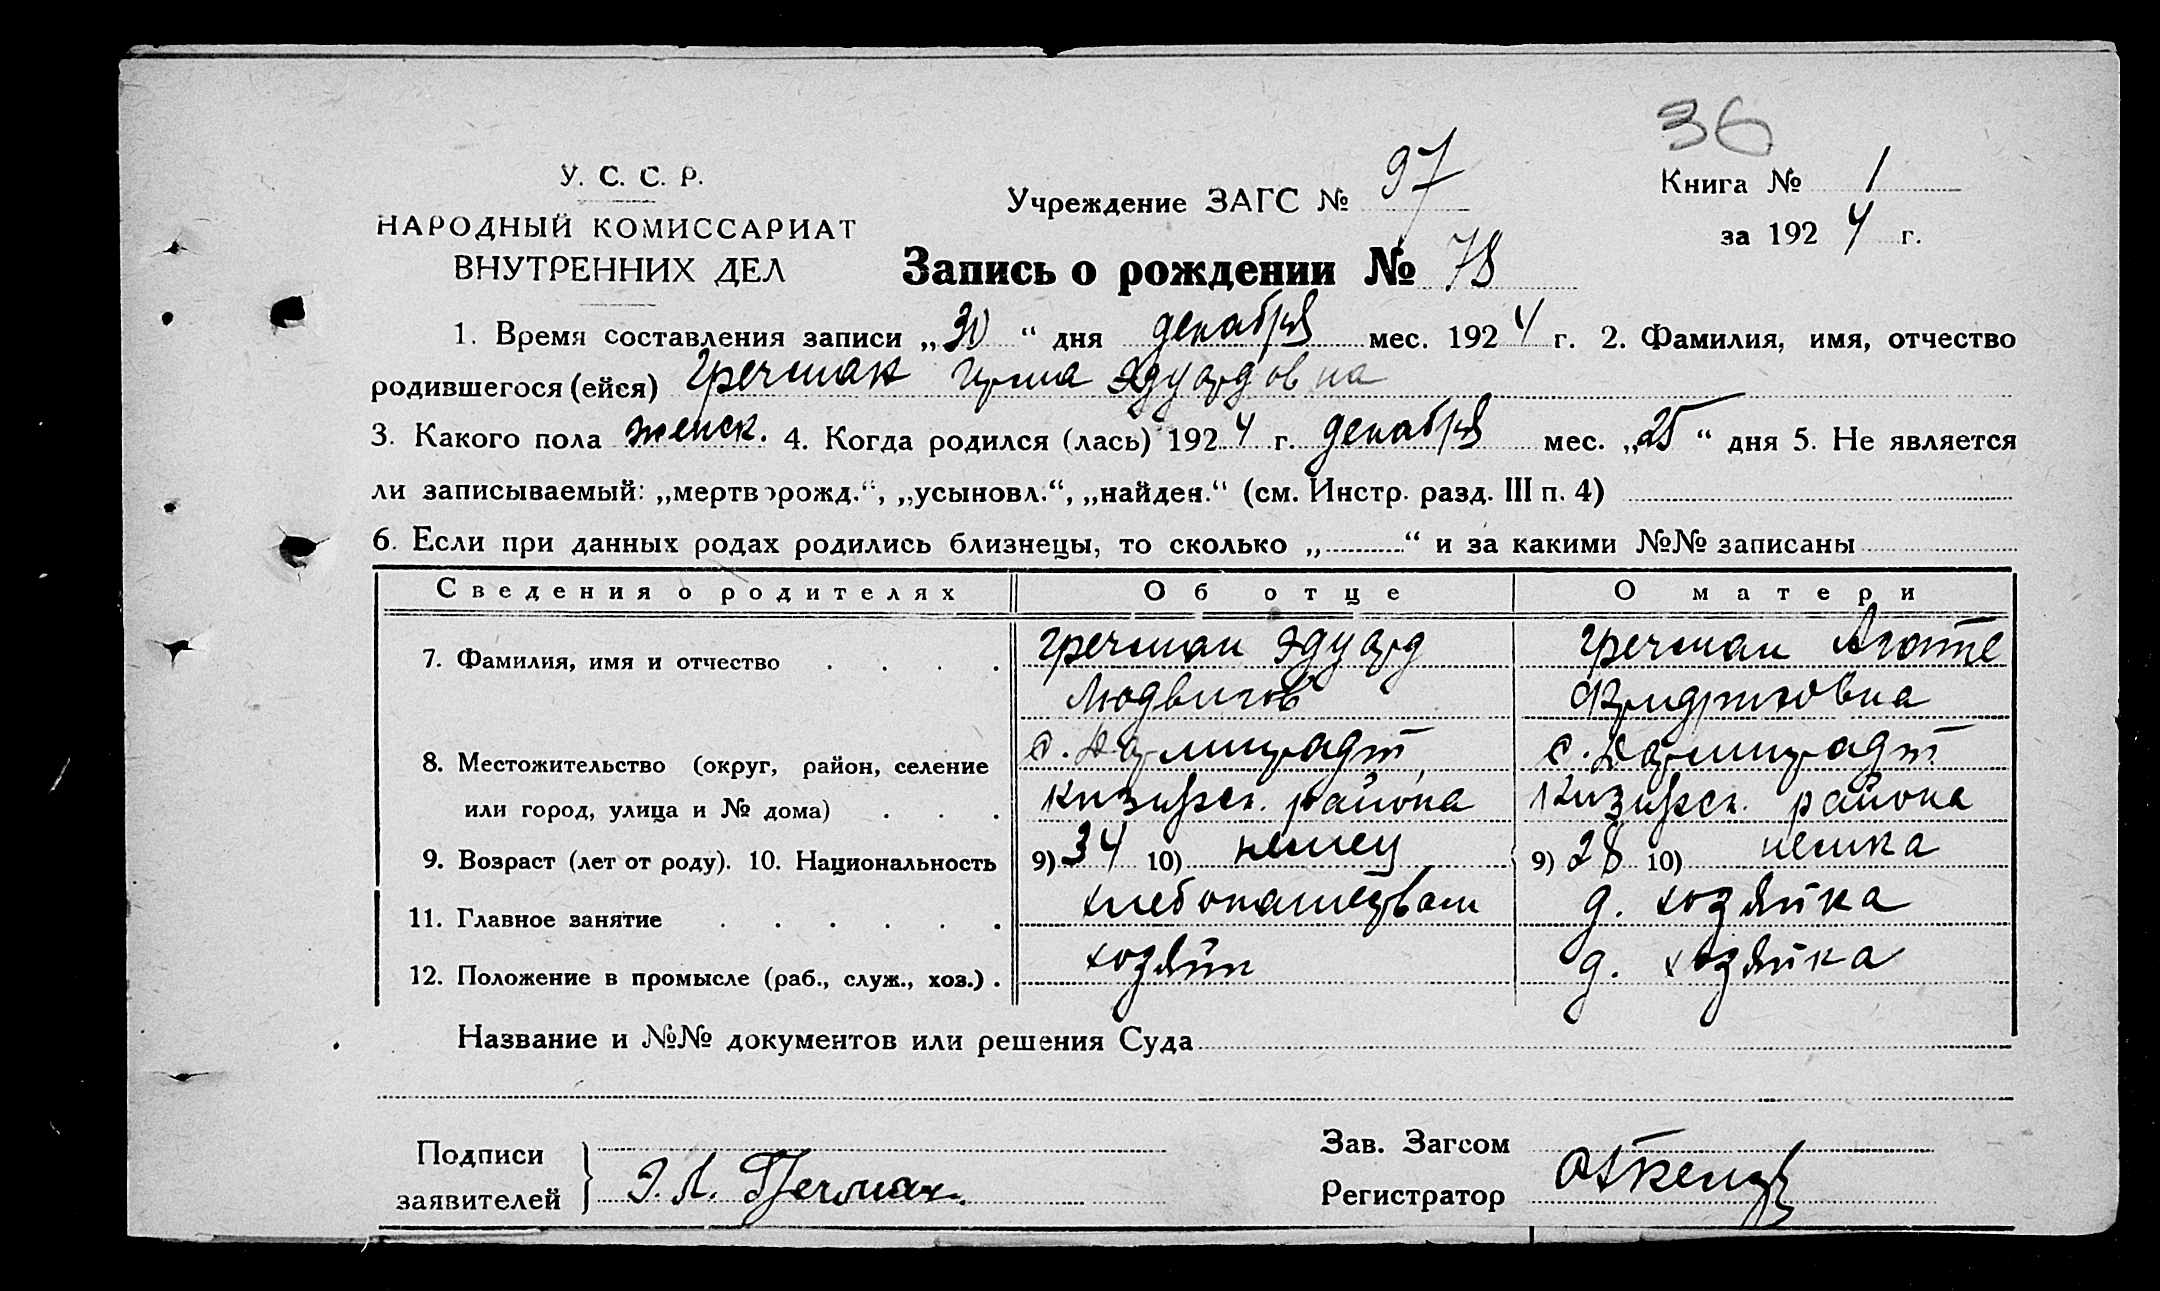 36
У. С. С. Р.
НАРОДНЫЙ КОМИССАРИАТ
ВНУТРЕННИХ ДЕЛ
Учреждение ЗАГС № 97
Книга № 1
за 1924 г.
Запись о рождении № 78
1. Время составления записи „30“ дня декабря мес. 1924 г. 2. Фамилия, имя, отчество
родившегося (ейся) Гречман Ирма Эдуардовна
3. Какого пола женск. 4. Когда родился (лась) 1924 г. декабря мес. „25“ дня 5. Не является
ли записываемый: „мертворожд.“, „усыновл.“, „найден.“ (см. Инстр. разд. III п. 4)
6. Если при данных родах родились близнецы, то сколько „ “ и за какими №№ записаны
Сведения о родителях Об отце О матери
7. Фамилия, имя и отчество Гречман Эдуард Гречман Агате
Людвигов Фридриховна
8. Местожительство (округ, район, селение с. Дармштадт с. Дармштадт
или город, улица и № дома) района района
9. Возраст (лет от роду). 10. Национальность 9) 34 10) немец 9) 28 10) немка
11. Главное занятие д. хозяйка
12. Положение в промысле (раб., служ., хоз.) хозяин д. хозяйка
Название и №№ документов или решения Суда
Подписи
заявителей Э. Л. Гречман
Зав. Загсом
Регистратор